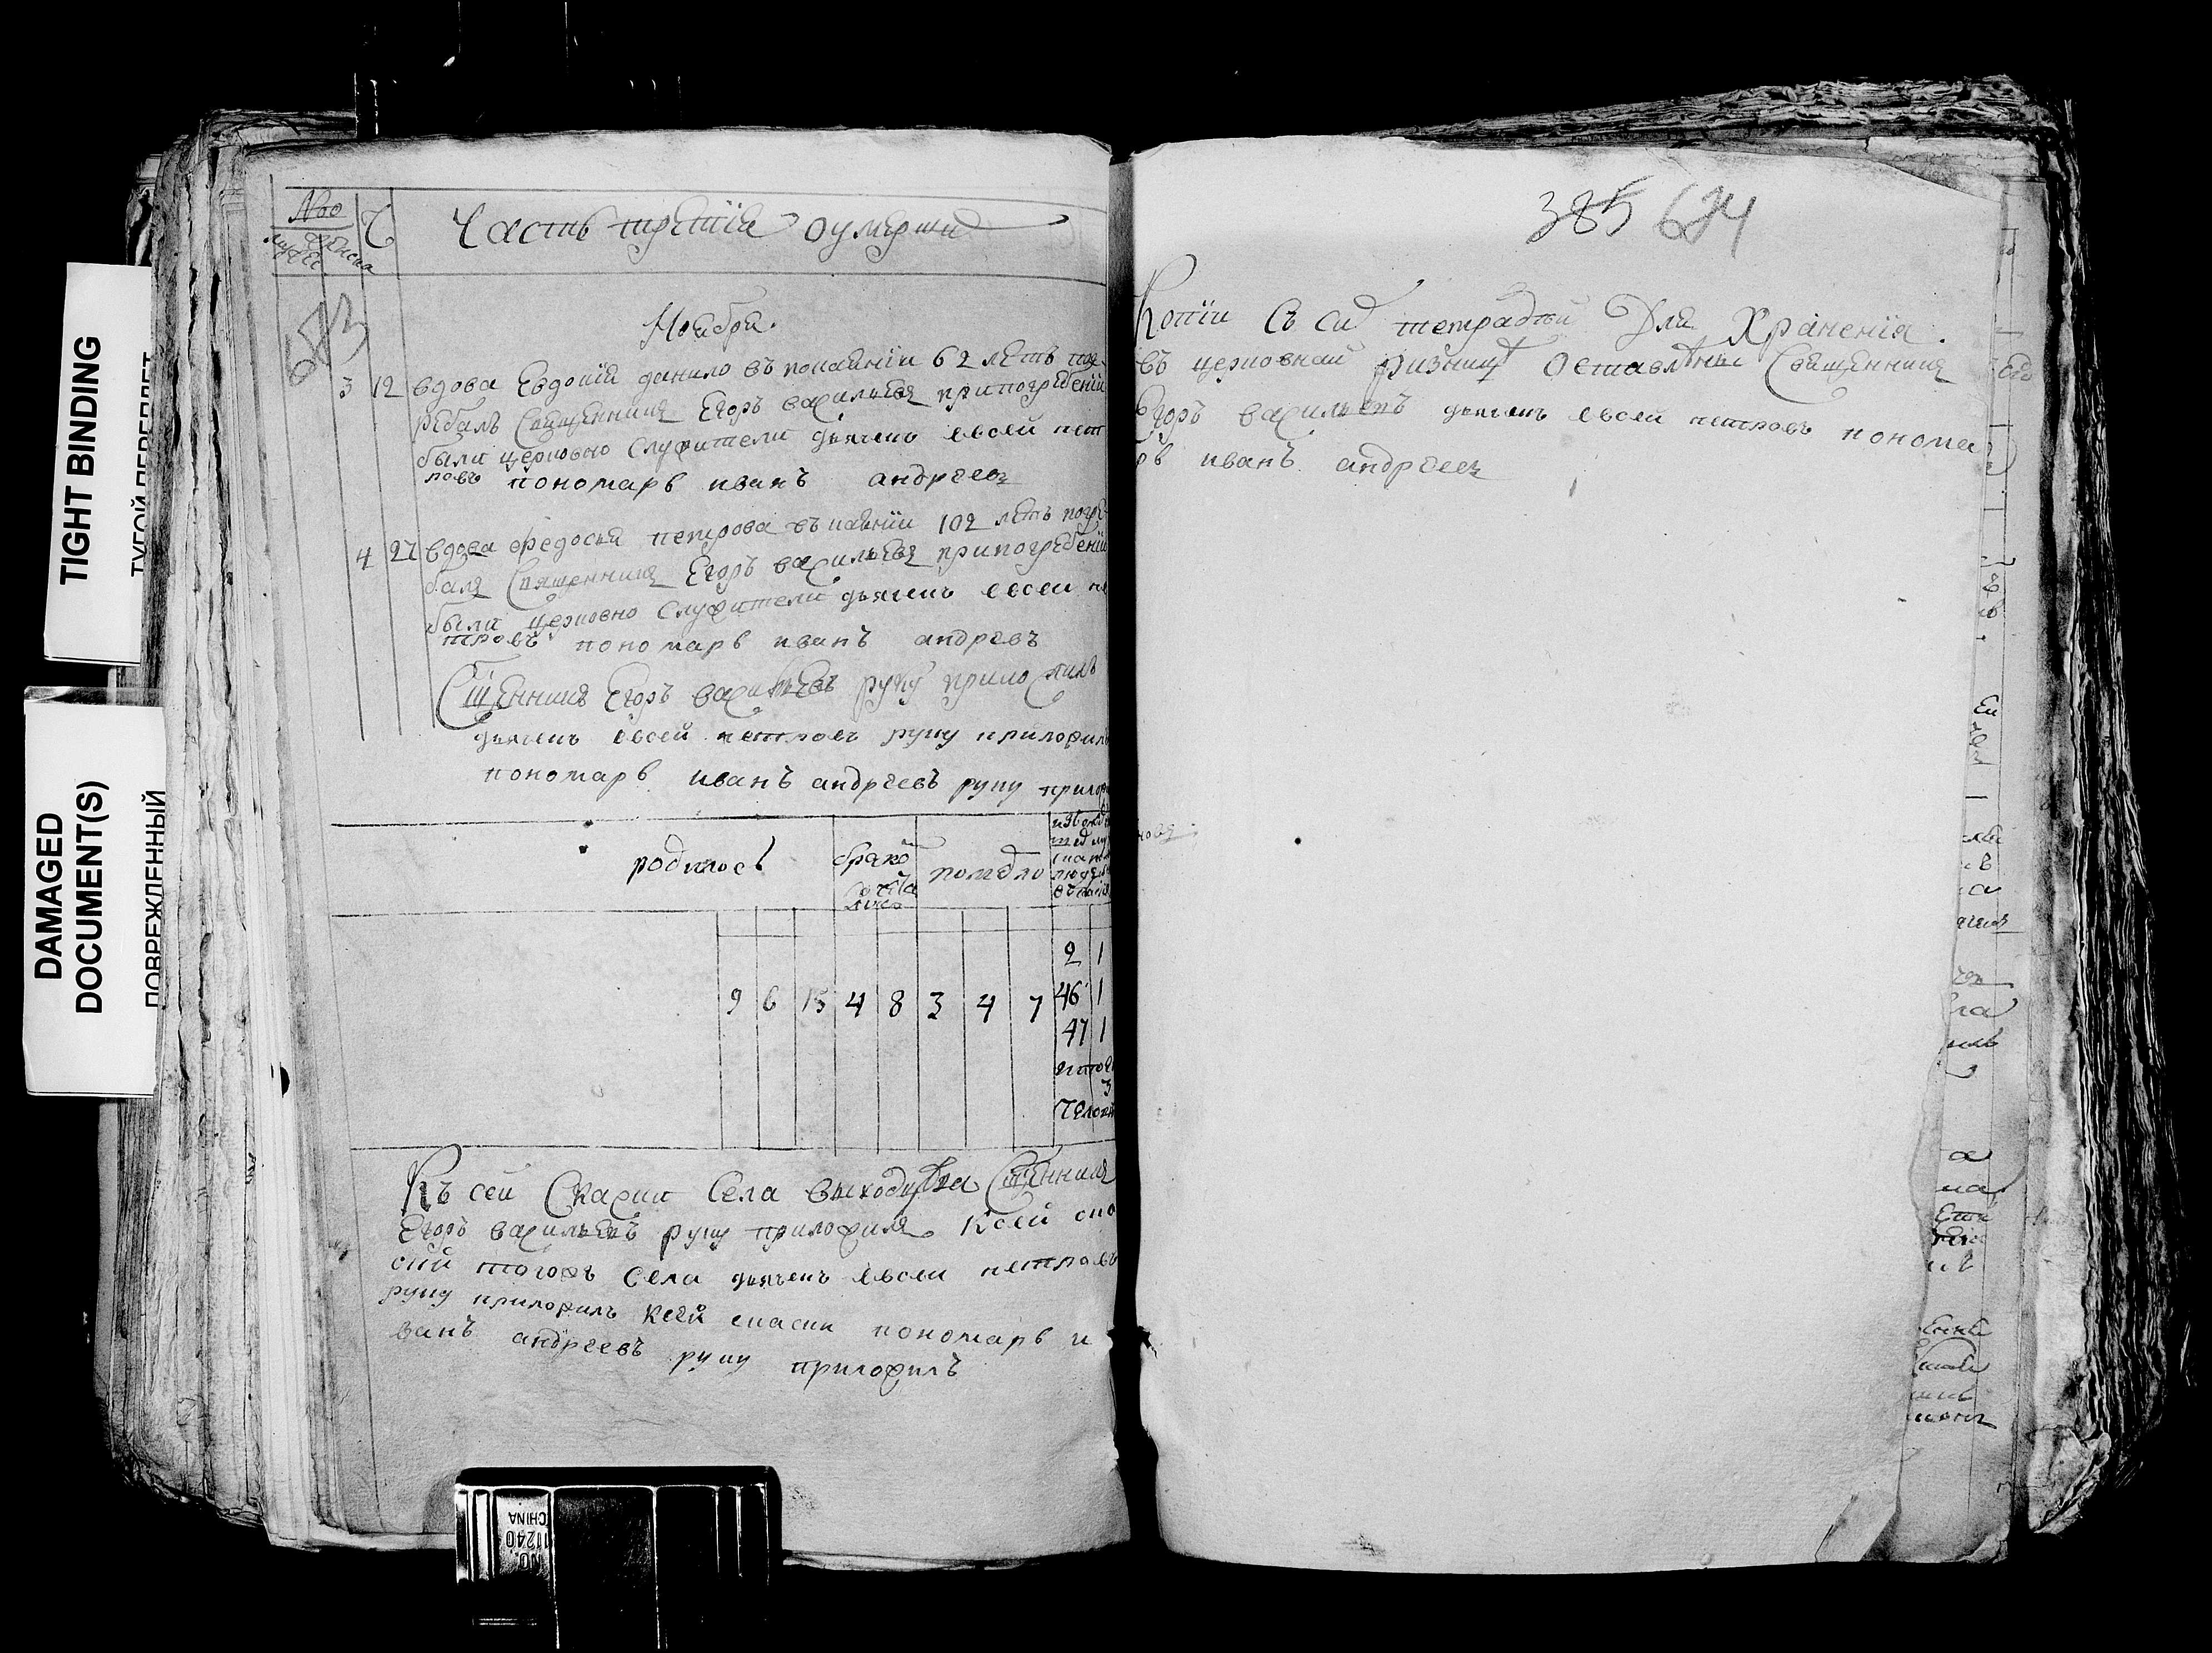 TIGHT BINDING
ТУГОЙ ПЕРЕПЛЕТ
DAMAGED
DOCUMENT(S)
ПОВРЕЖДЕННЫЙ
Часть третїя оумерши
673
Ноября.
3 12 вдова Евдокїя данило въ покаянїи 62 летъ пог
ребалъ Священникъ Егоръ васильевъ припогребенїи
были церковно служители дьячекъ евсей пет
ровъ пономарь иванъ андреевъ
4 27 вдова федосья петрова въ 102 летъ погре
балъ Священникъ Егоръ васильевъ припогребенїи
были церковно служители дьячекъ евсей пе
тровъ пономарь иванъ андревъ
Сщенникъ Егоръ васильевъ руку приложилъ
дьячекъ евсей петровъ руку приложилъ
пономарь иванъ андреевъ руку прилож
родилось
брако
померло
2 1
9 6 15 4 8 3 4 7 46 1
47 1
итого
3
челове
Къ сей Скаски Села Сщенникъ
Егоръ васильевъ руку приложилъ Ксей ска
ски тогожъ Села дьячекъ евсеи петровъ
руку приложилъ Ксей скаски пономарь и
ванъ андреевъ руку приложилъ
NO.
11240
CHINA
385 674
Копїи Съ си тетрадки Для Храненїя
въ церковнай ризнице Оставлены Священникъ
Егоръ васильевъ дьячекъ евсей петровъ понома
рь иванъ андреевъ